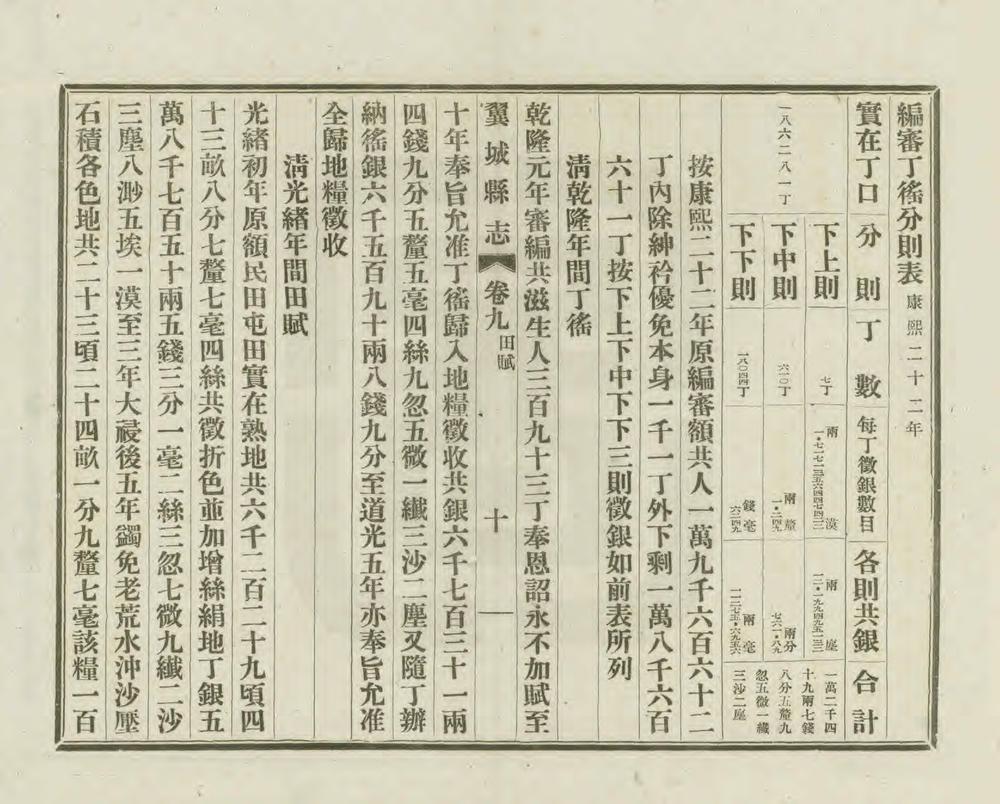 編審丁徭分則表 康熙二十二年
實在丁口 分則 丁數 每丁徵銀數目 各則共銀 合計
一八六二八一丁
下上則 七丁
下中則 六一〇丁
下下則 一八〇四四丁
一萬二千四
十九兩七錢
八分五釐九
忽五微一纖
三沙二塵
按康熙二十二年原編審額共人一萬九千六百六十二
丁內除紳衿優免本身一千一丁外下剩一萬八千六百
六十一丁按下上下中下下三則徵銀如前表所列
清乾隆年間丁徭
乾隆元年審編共滋生人三百九十三丁奉恩詔永不加賦至
翼城縣志 卷九 田賦 十
十年奉旨允准丁徭歸入地糧徵收共銀六千七百三十一兩
四錢九分五釐五毫四絲九忽五微一纖三沙二塵又隨丁辦
納徭銀六千五百九十兩八錢九分至道光五年亦奉旨允准
全歸地糧徵收
清光緒年間田賦
光緒初年原額民田屯田實在熟地共六千二百二十九頃四
十三畝八分七釐七毫四絲共徵折色並加增絲絹地丁銀五
萬八千七百五十兩五錢三分一毫二絲三忽七微九纖二沙
三塵八渺五埃一漠至三年大祲後五年蠲免老荒水沖沙壓
石積各色地共二十三頃二十四畝一分九釐七毫該糧一百